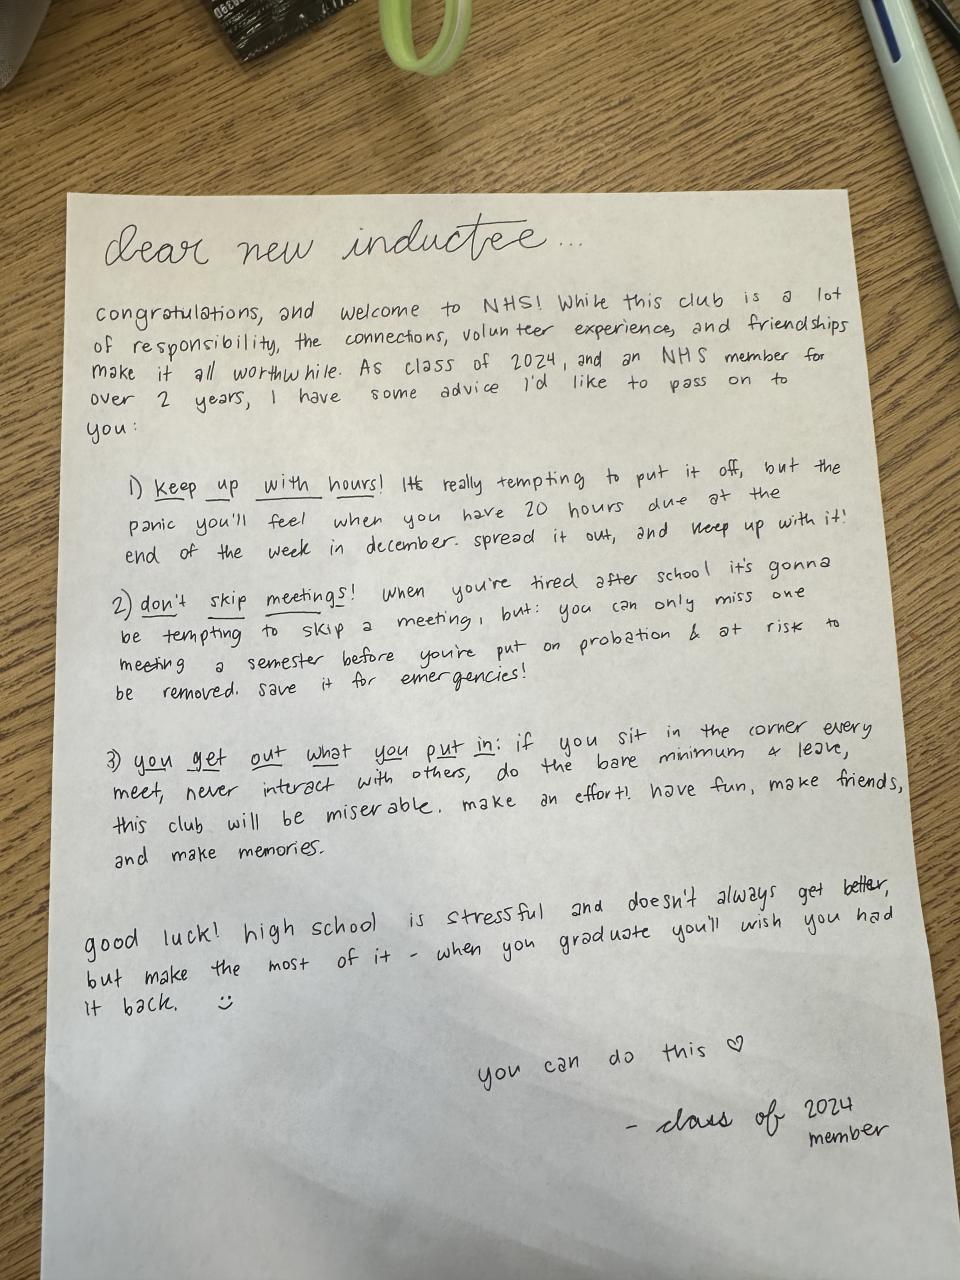 dear new inductee...
congratulations, and welcome to NHS! While this club is a lot
of responsibility, the connections, volunteer experience, and friendships
make it all worthwhile. As class of 2024, and an NHS member for
over 2 years, I have some advice I'd like to pass on to
you:
1) keep up with hours! It's really tempting to put it off, but the
panic you'll feel when you have 20 hours due at the
end of the week in december. spread it out, and keep up with it!
2) don't skip meetings! when you're tired after school it's gonna
be tempting to skip a meeting, but: you can only miss one
meeting a semester before you're put on probation & at risk to
be removed. save it for emergencies!
3) you get out what you put in: if you sit in the corner every
meet, never interact with others, do the bare minimum & leave,
this club will be miserable. make an effort! have fun, make friends,
and make memories.
good luck! high school is stressful and doesn't always get better,
but make the most of it - when you graduate you'll wish you had
it back. :)
you can do this ♡
- class of 2024
member